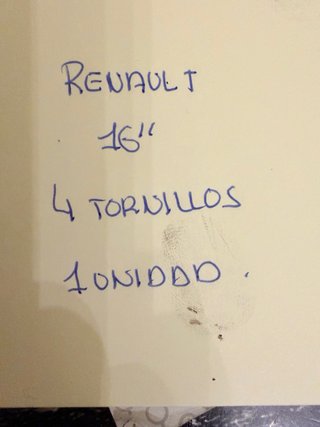 RENAULT
16"
4 TORNILLOS
1 UNIDAD.